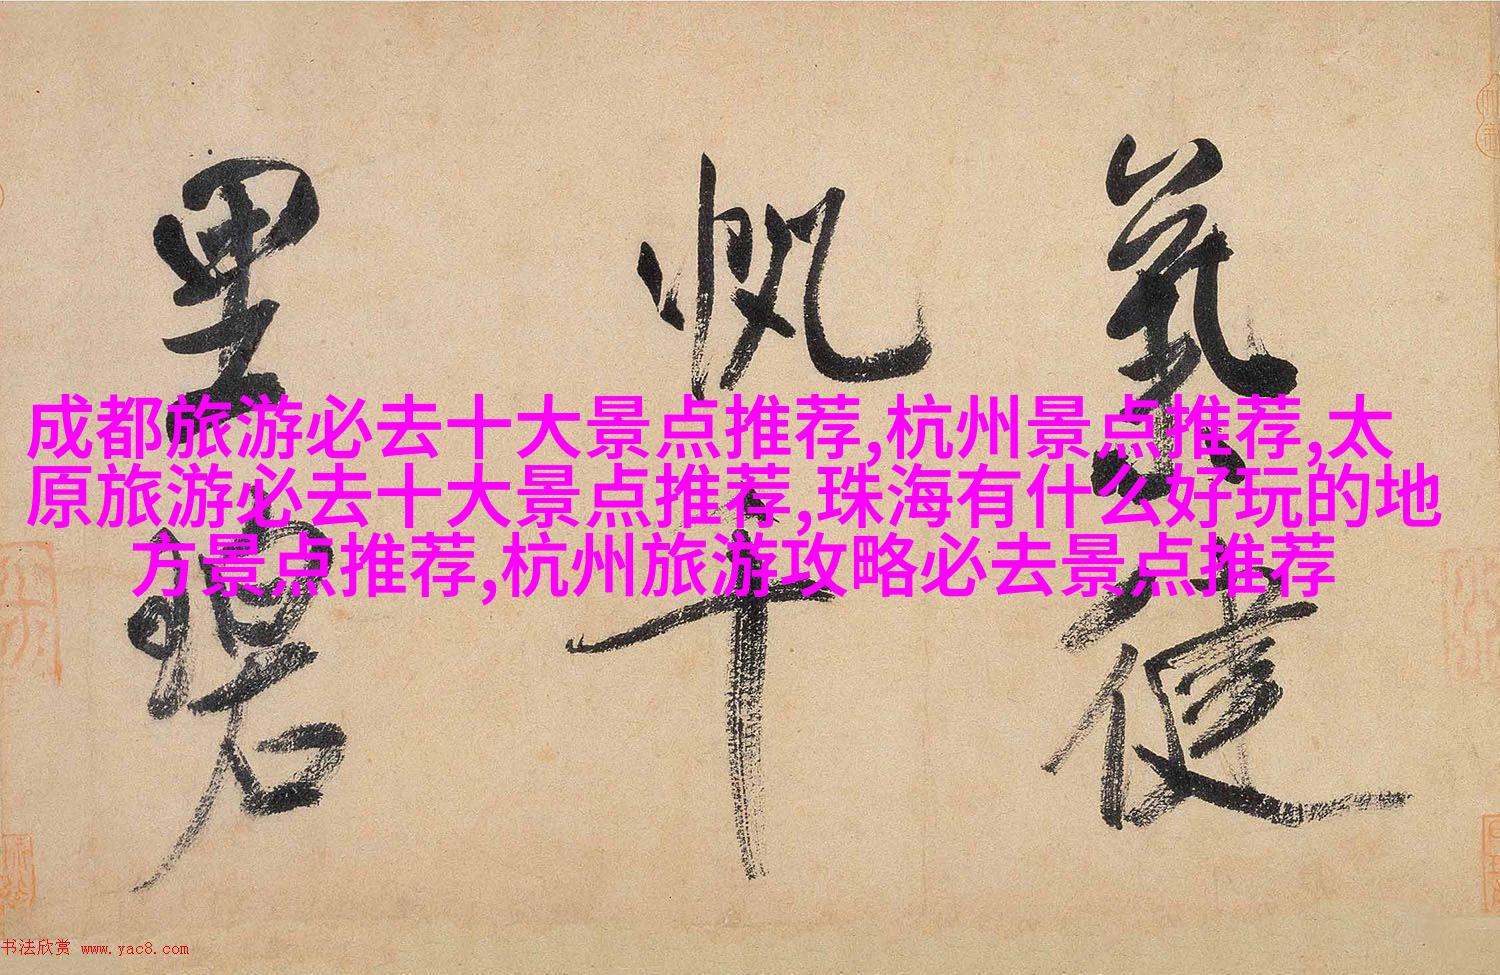 成都旅游必去十大景点推荐,杭州景点推荐,太
原旅游必去十大景点推荐,珠海有什么好玩的地
方景点推荐,杭州旅游攻略必去景点推荐
健
帆千
里碧
书法欣赏 www.yac8.com